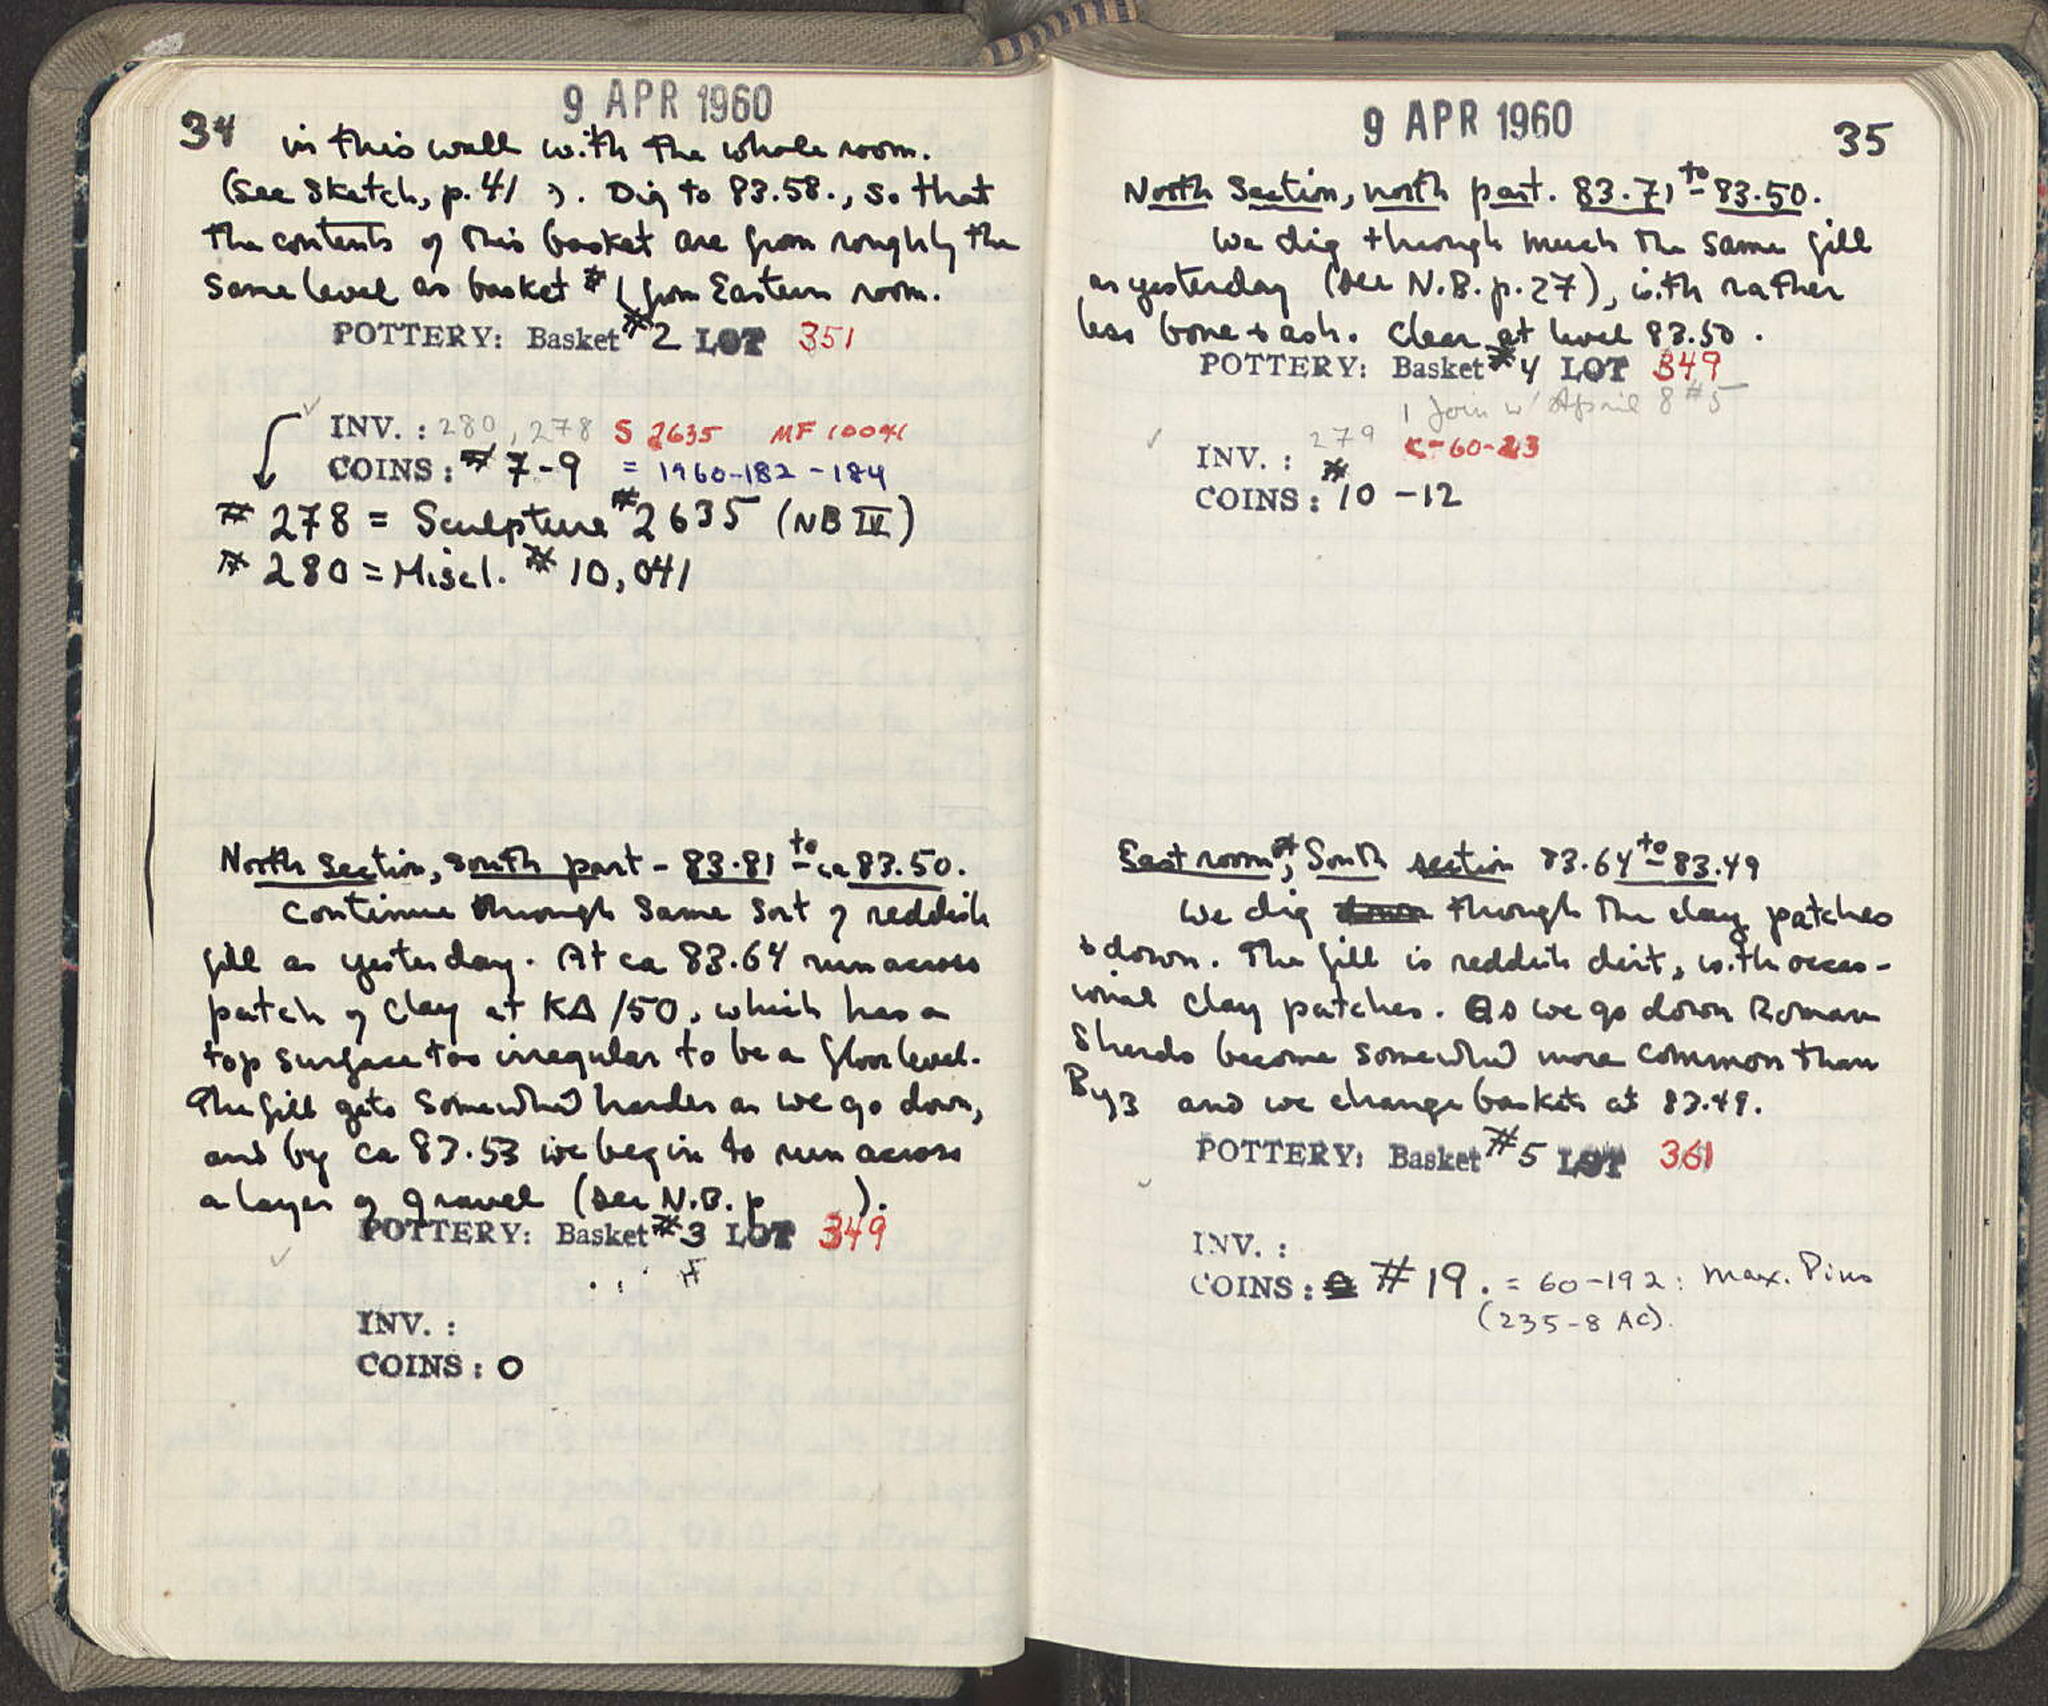 9 APR 1960
34
in this wall with the whole room.
(see Sketch, p. 41 ). Dig to 83.58., so that
the contents of this basket are from roughly the
same level as basket #1 from Eastern room.
POTTERY: Basket #2 LOT 351
INV. : 280, 278 S 2635 MF 10041
COINS : # 7-9 = 1960-182-184
# 278 = Sculpture #2635 (NB IV)
# 280 = Miscl. # 10,041
North Section, south part - 83.81 to ca 83.50.
Continue through same sort of reddish
fill as yesterday. At ca 83.64 run across
patch of clay at KΔ/50, which has a
top surface too irregular to be a floor level.
The fill gets somewhat harder as we go down,
and by ca 83.53 we begin to run across
a layer of gravel (see N.B. p ).
POTTERY: Basket #3 LOT 349
INV. :
COINS : 0
9 APR 1960
35
North Section, north part. 83.71 to 83.50.
We dig through much the same fill
as yesterday (see N.B. p. 27), with rather
less bone & ash. Clear at level 83.50.
POTTERY: Basket #4 LOT 349
1 Join w/ April 8 #5
INV. : 279 C-60-23
COINS : #10-12
East room, South section 83.64 to 83.49
We dig down through the clay patches
& down. The fill is reddish dirt, with occas-
ional clay patches. As we go down Roman
Sherds become somewhat more common than
Byz and we change baskets at 83.49.
POTTERY: Basket #5 LOT 361
INV. :
COINS : 0 #19. = 60-192: Max. Pius
(235-8 AC).